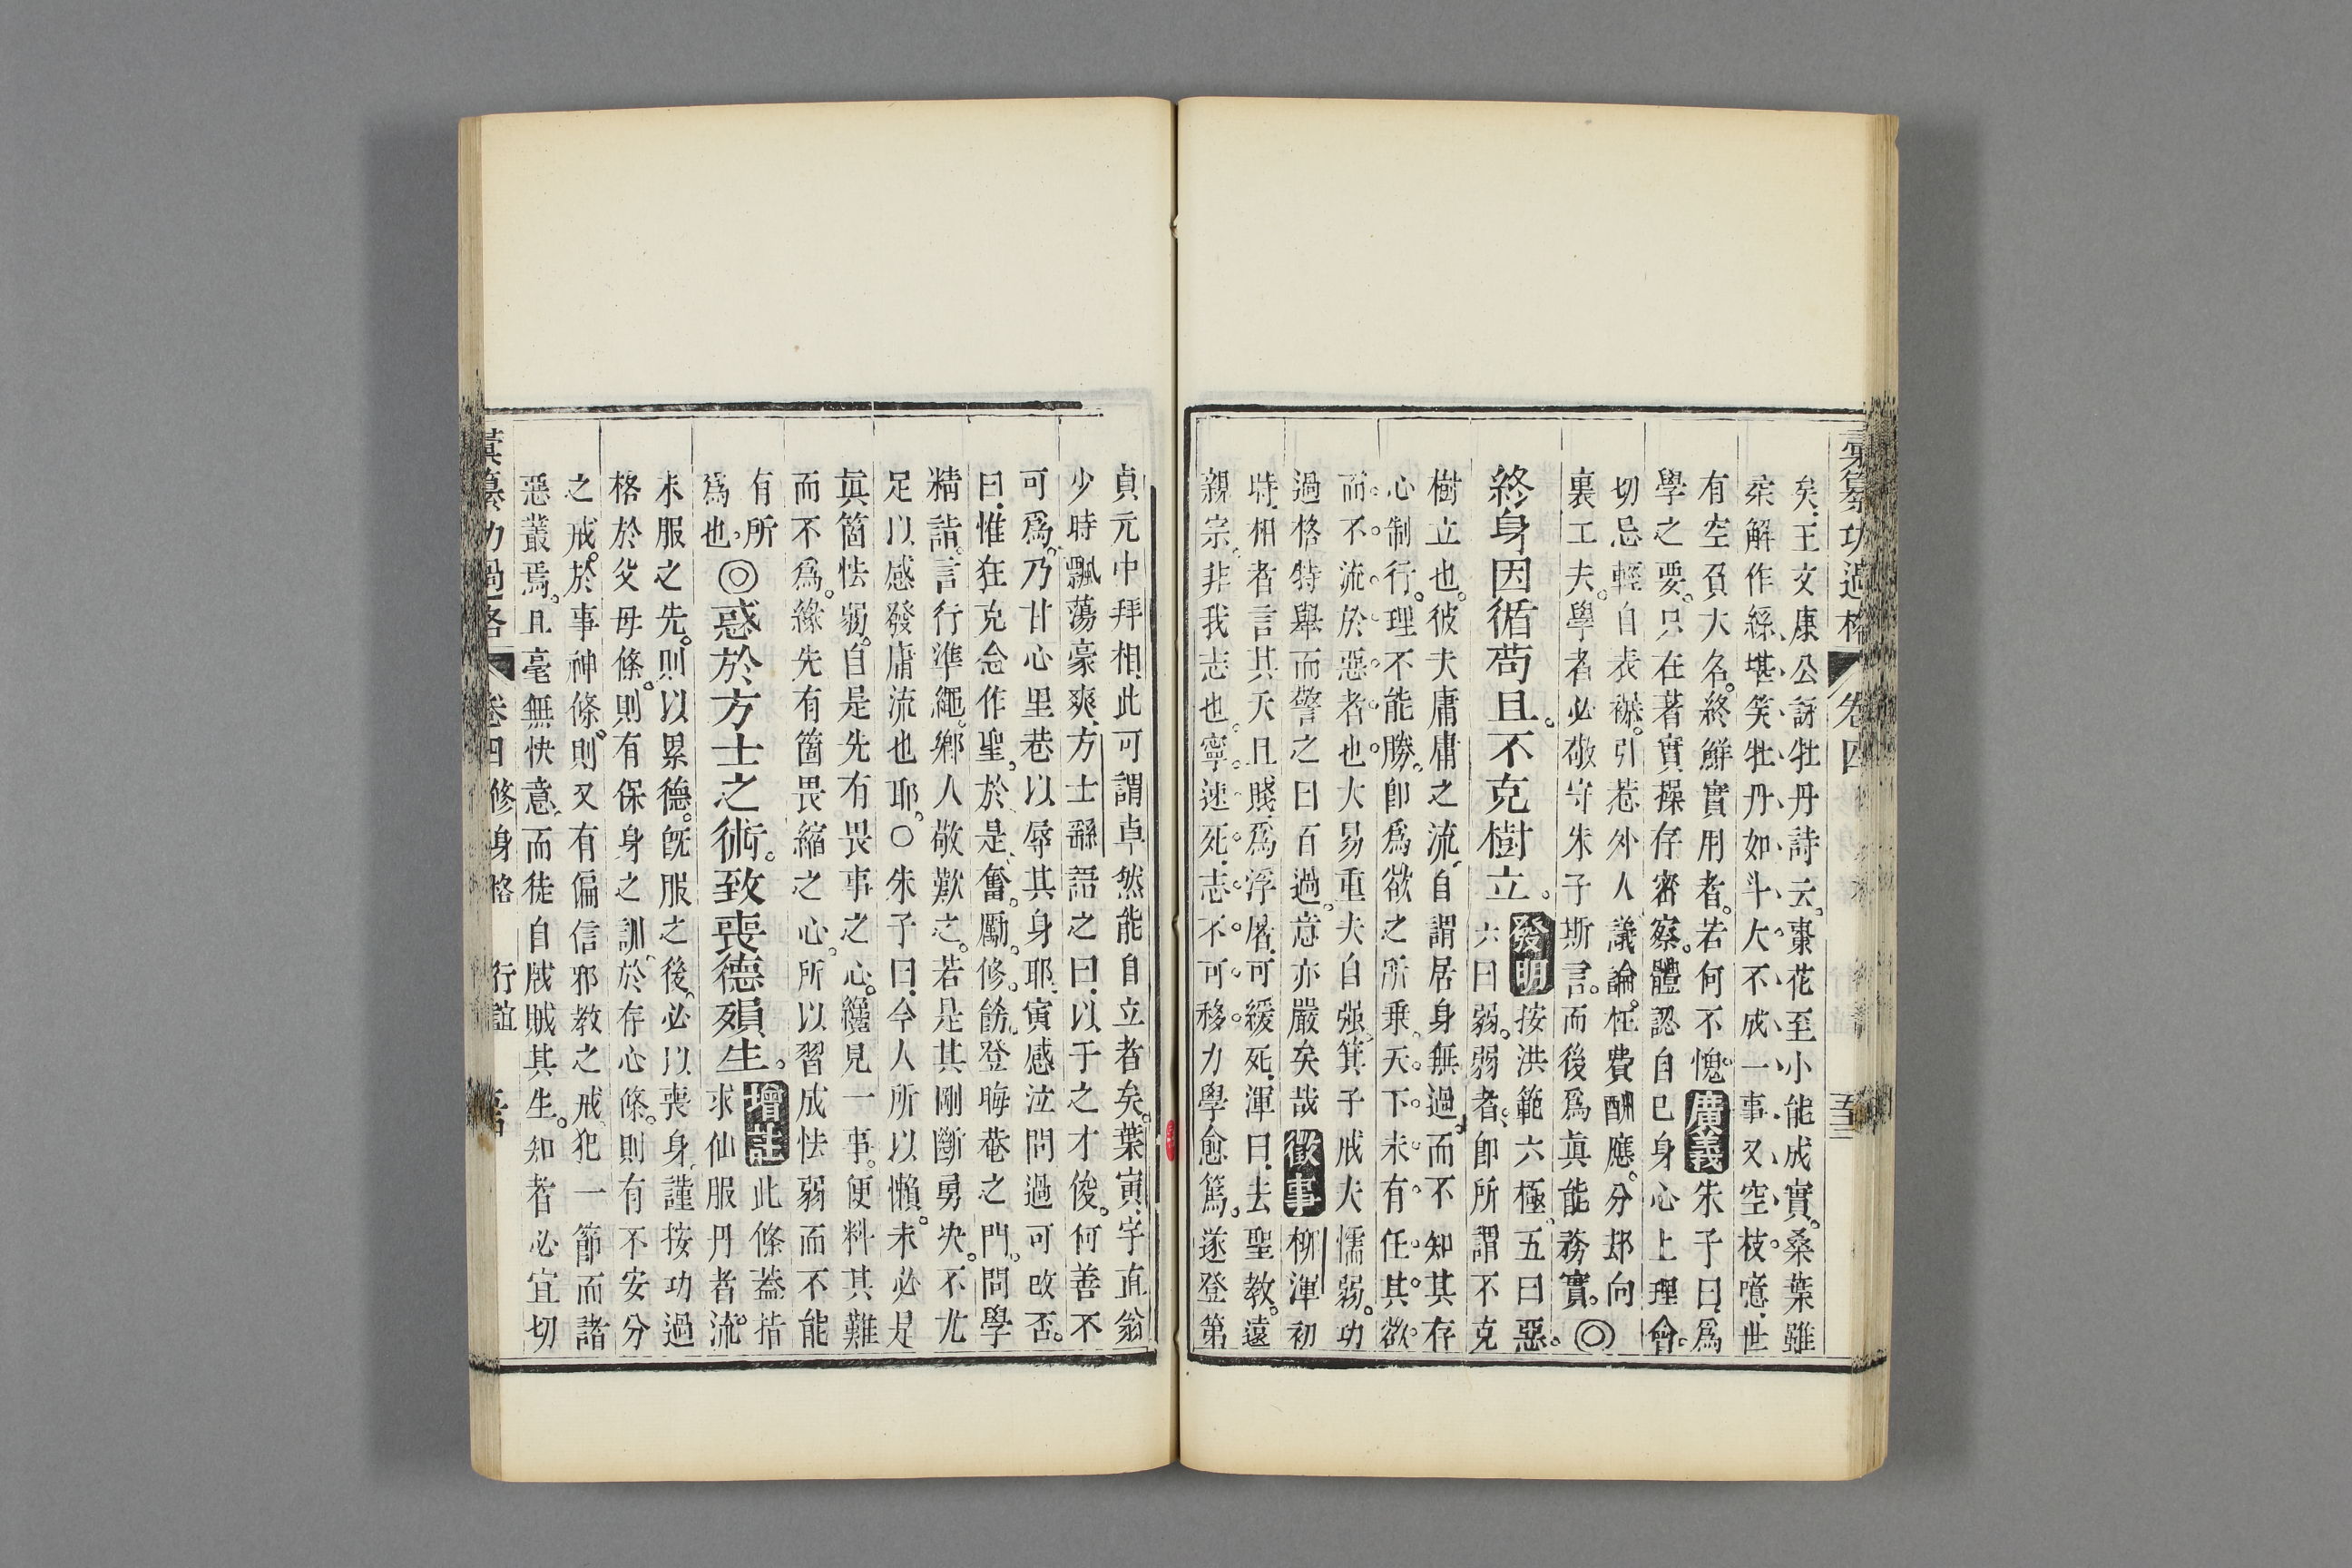 彙纂功過格 卷四 五三
矣王文康公詠牡丹詩云棗花至小能成實桑葉雖
柔解作絲堪笑牡丹如斗大不成一事又空枝噫世
有空負大名終鮮實用者若何不愧廣義朱子曰爲
學之要只在著實操存密察體認自己身心上理會
切忌輕自表襮引惹外人議論枉費酬應分却向
裏工夫學者必敬守朱子斯言而後爲眞能務實◎
終身因循苟且不克樹立發明按洪範六極五曰惡
六曰弱弱者卽所謂不克
樹立也彼夫庸庸之流自謂居身無過而不知其存
心制行理不能勝卽爲欲之所乗天下未有任其欲
而不流於惡者也大易重夫自强箕子戒夫懦弱功
過格特舉而警之曰百過意亦嚴矣哉徵事柳渾初
時相者言其夭且賤爲浮屠可緩死渾曰去聖教遠
親宗非我志也寧速死志不可移力學愈篤遂登第
貞元中拜相此可謂卓然能自立者矣葉寅字直翁
少時飄蕩豪爽方士繇語之曰以子之才俊何善不
可爲乃甘心里巷以辱其身耶寅感泣問過可改否
曰惟狂克念作聖於是奮勵修飭登晦菴之門問學
精詣言行準繩鄉人敬歎之若是其剛斷勇決不尤
足以感發庸流也耶○朱子曰今人所以懶未必是
眞箇怯弱自是先有畏事之心纔見一事便料其難
而不爲緣先有箇畏縮之心所以習成怯弱而不能
有所
爲也◎惑於方士之術致喪德殞生增註此條葢指
求仙服丹者流
未服之先則以累德旣服之後必以喪身謹按功過
格於父母條則有保身之訓於存心條則有不安分
之戒於事神條則又有偏信邪教之戒犯一節而諸
惡叢焉且毫無快意而徒自戕賊其生知者必宜切
彙纂功過格 卷四 修身格 行誼